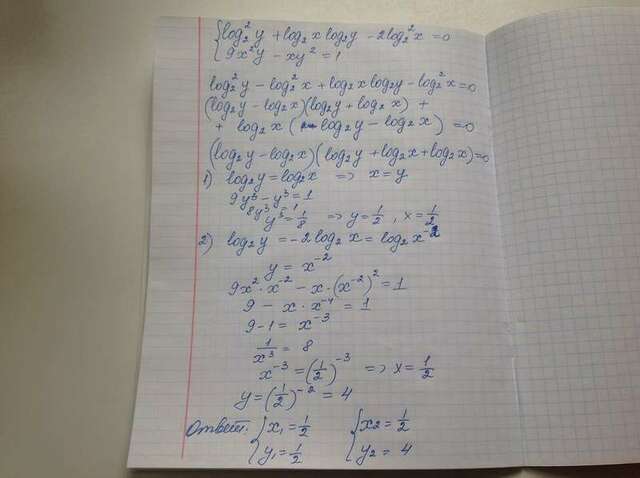 { log₂²y + log₂x log₂y - 2log₂²x = 0
9x²y - xy² = 1
log₂²y - log₂²x + log₂x log₂y - log₂²x = 0
(log₂y - log₂x)(log₂y + log₂x) +
+ log₂x (log₂y - log₂x) = 0
(log₂y - log₂x)(log₂y + log₂x + log₂x) = 0
1) log₂y = log₂x => x = y
9y³ - y³ = 1
8y³ = 1
y³ = 1/8 => y = 1/2, x = 1/2
2) log₂y = -2log₂x = log₂x⁻²
y = x⁻²
9x² · x⁻² - x · (x⁻²)² = 1
9 - x · x⁻⁴ = 1
9 - 1 = x⁻³
1/x³ = 8
x⁻³ = (1/2)⁻³ => x = 1/2
y = (1/2)⁻² = 4
Ответ. { x₁ = 1/2 { x₂ = 1/2
y₁ = 1/2 y₂ = 4